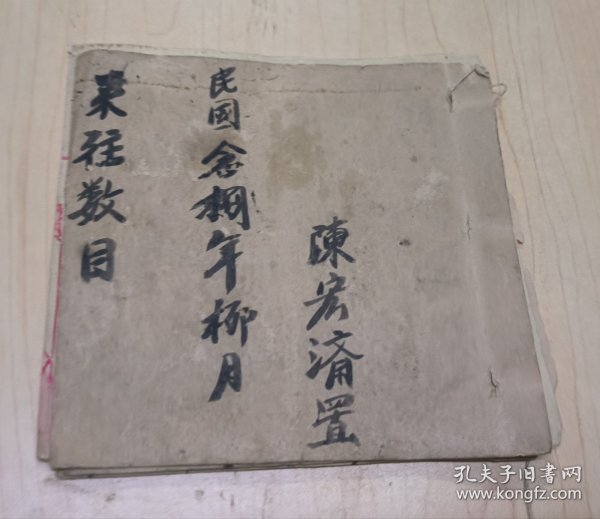 陳宏濟置
民國念捌年柳月
来往数目
孔夫子旧书网
www.kongfz.com